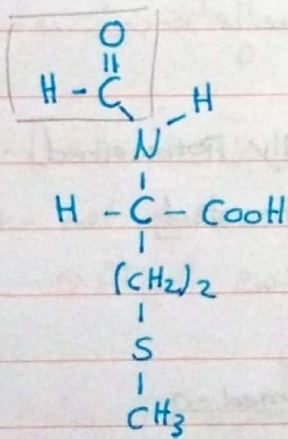 O
||
H - C
- H
N
H - C - COOH
(CH2)2
S
CH3